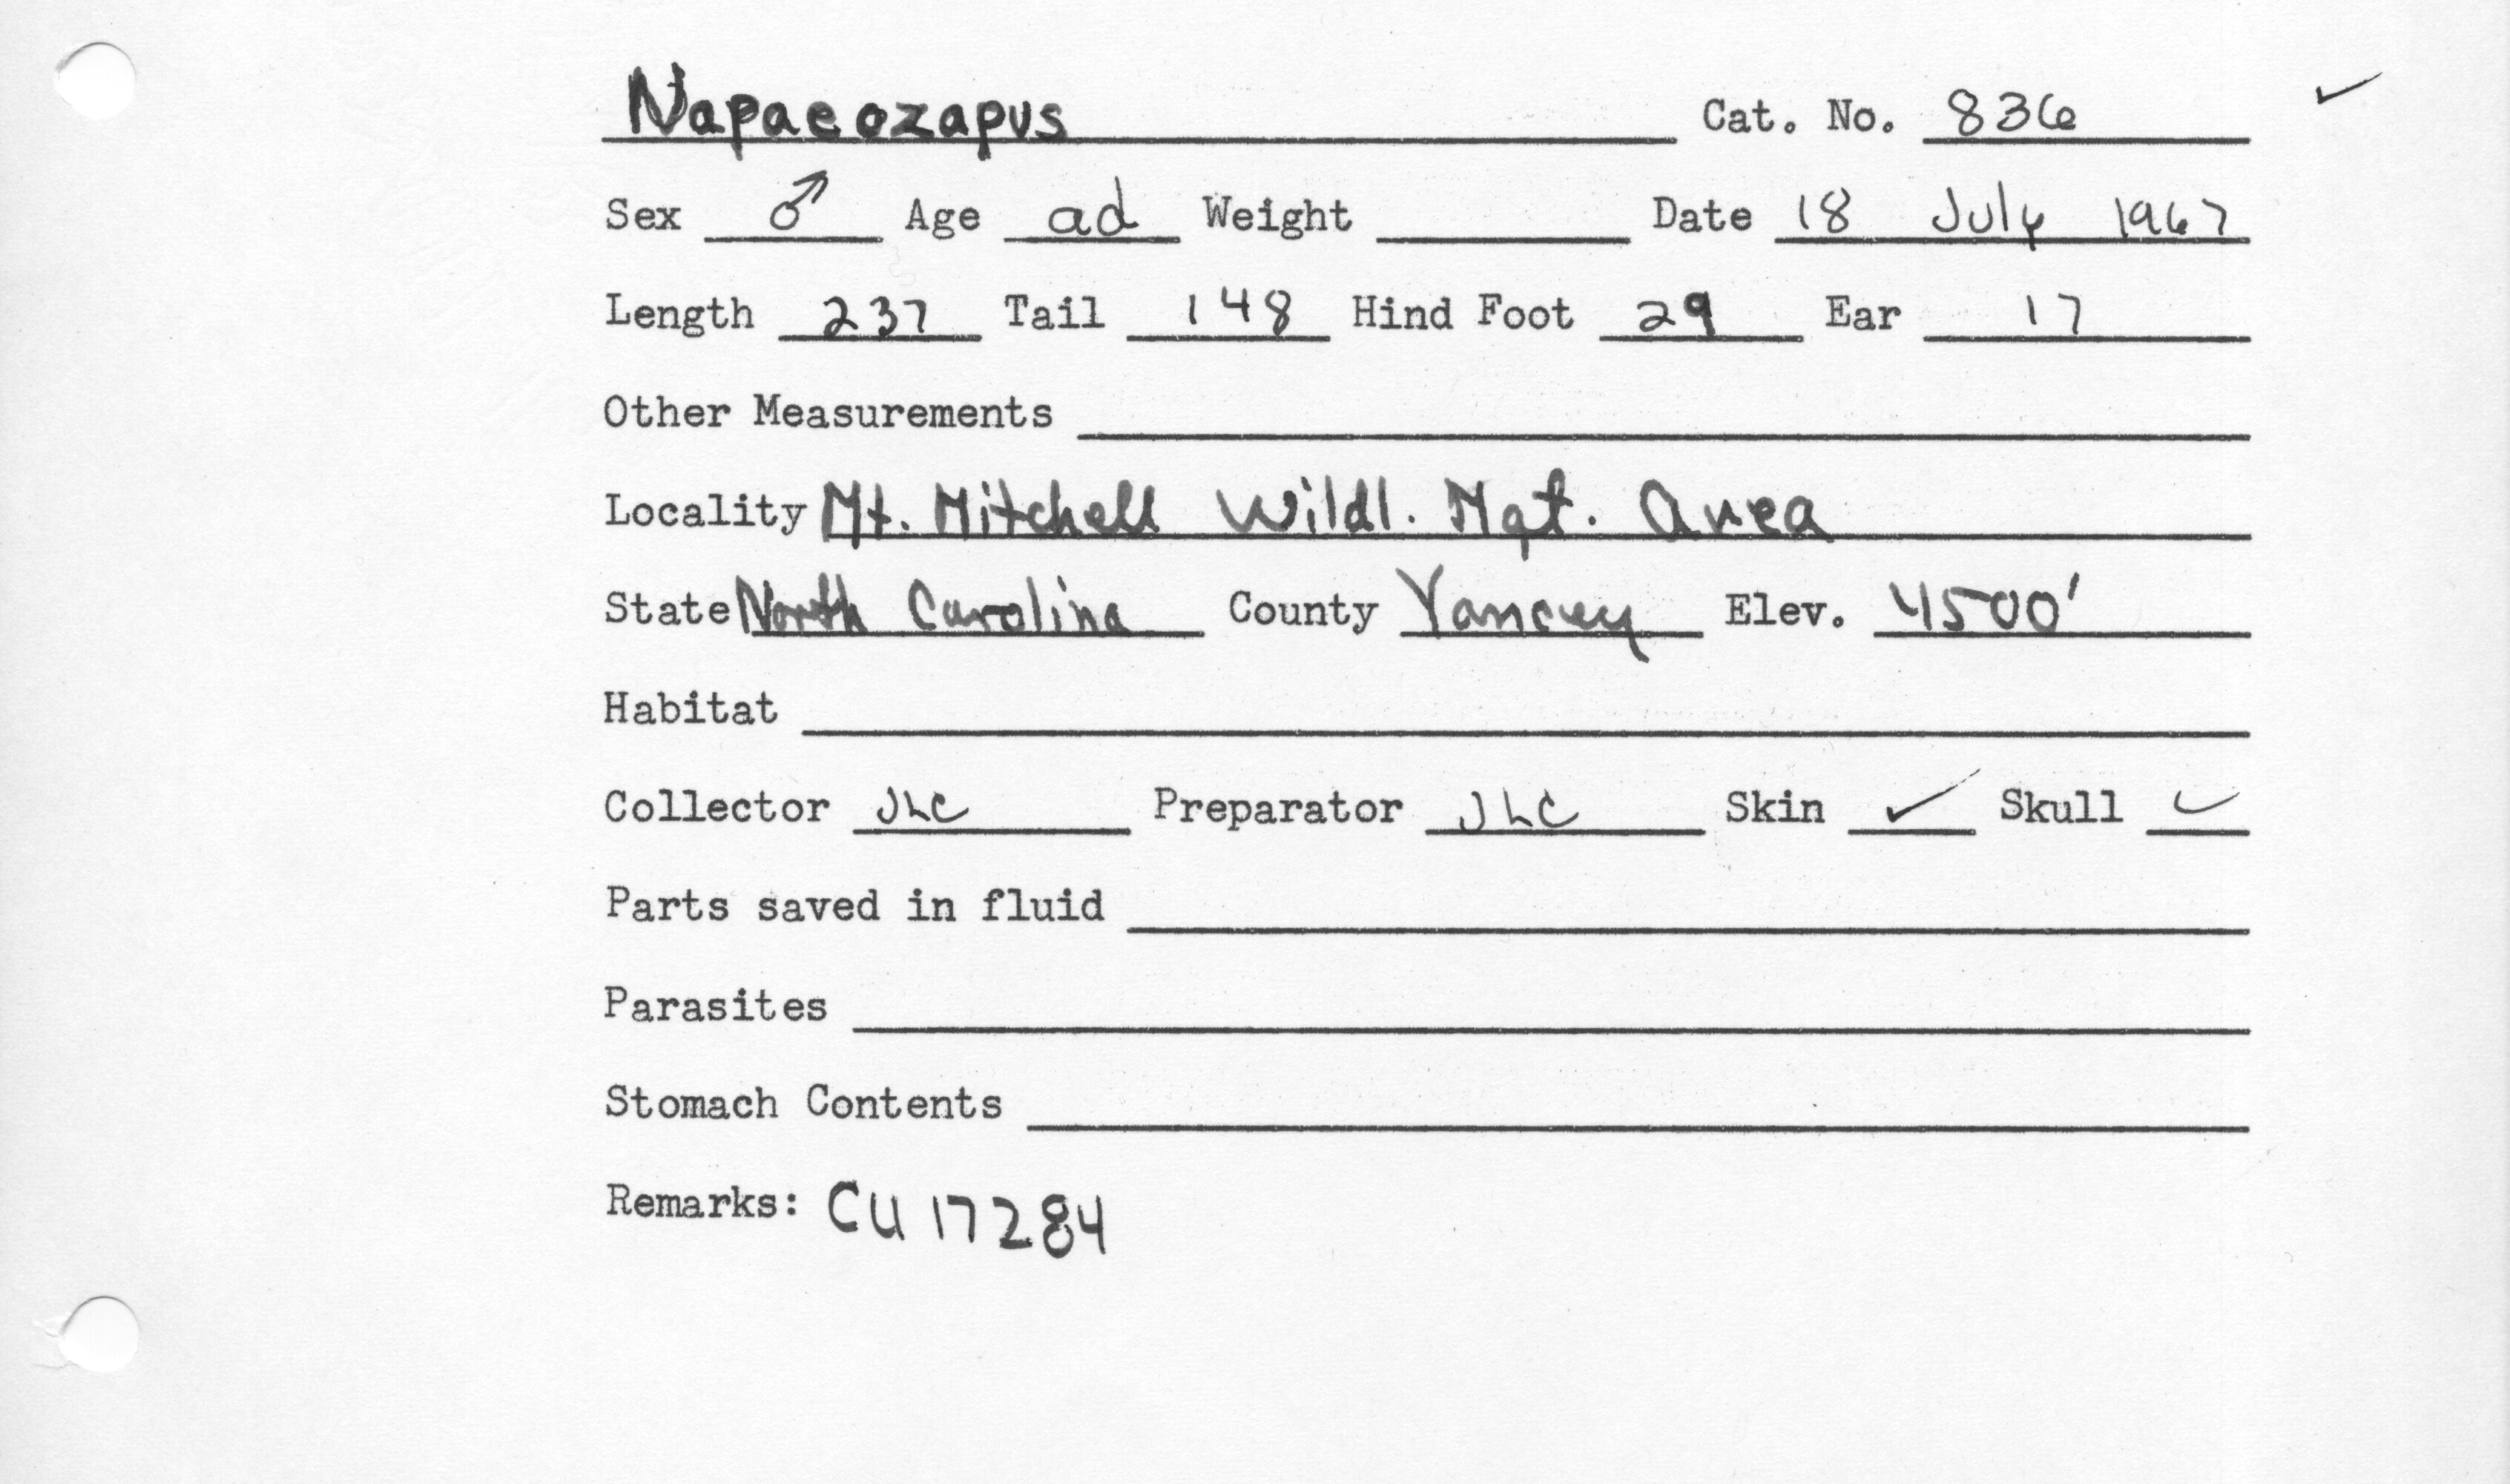 Napaeozapus Cat. No. 836 ✓
Sex ♂ Age ad Weight Date 18 July 1967
Length 237 Tail 148 Hind Foot 29 Ear 17
Other Measurements
Locality Mt. Mitchell Wildl. Mgt. Area
State North Carolina County Yancey Elev. 4500'
Habitat
Collector JLC Preparator JLC Skin ✓ Skull ✓
Parts saved in fluid
Parasites
Stomach Contents
Remarks: CU 17284